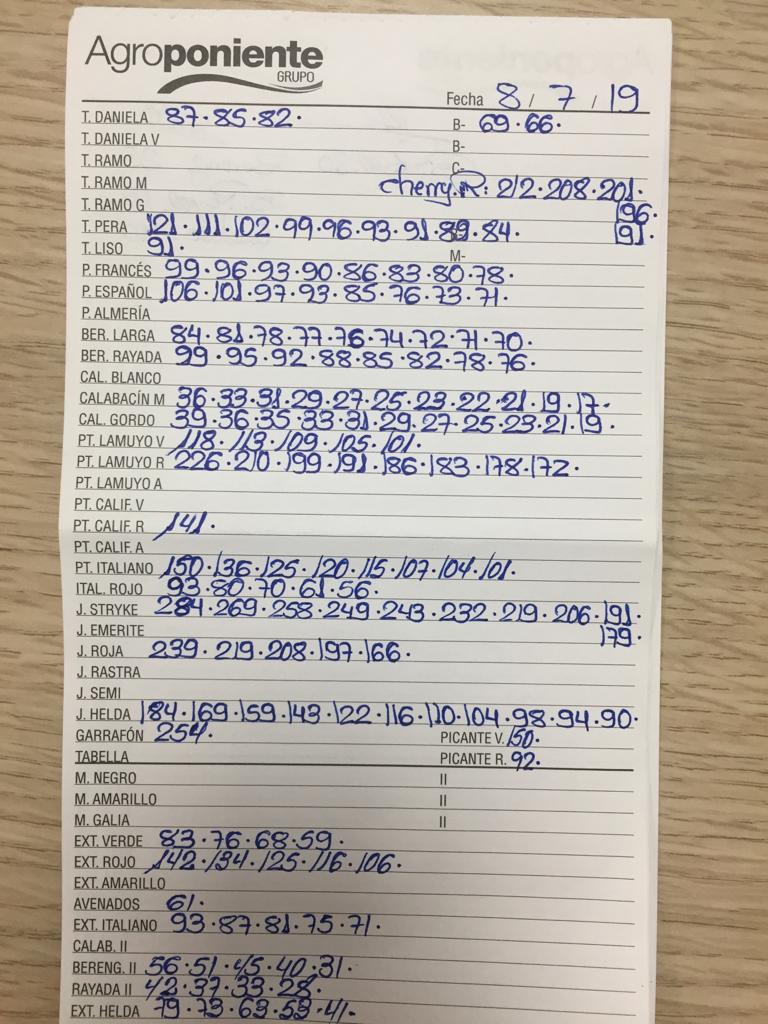 Agroponiente
GRUPO
Fecha 8 / 7 / 19
T. DANIELA 87·85·82· B- 69·66·
T. DANIELA V B-
T. RAMO C-
T. RAMO M cherry.R: 212·208·201·
T. RAMO G 196·
T. PERA 121·111·102·99·96·93·91·89·84· 191·
T. LISO 91· M-
P. FRANCÉS 99·96·93·90·86·83·80·78·
P. ESPAÑOL 106·101·97·93·85·76·73·71·
P. ALMERÍA
BER. LARGA 84·81·78·77·76·74·72·71·70·
BER. RAYADA 99·95·92·88·85·82·78·76·
CAL. BLANCO
CALABACÍN M 36·33·31·29·27·25·23·22·21·19·17·
CAL. GORDO 39·36·35·33·31·29·27·25·23·21·19·
PT. LAMUYO V 118·113·109·105·101·
PT. LAMUYO R 226·210·199·191·186·183·178·172·
PT. LAMUYO A
PT. CALIF. V
PT. CALIF. R 141·
PT. CALIF. A
PT. ITALIANO 150·136·125·120·115·107·104·101·
ITAL. ROJO 93·80·70·61·56·
J. STRYKE 284·269·258·249·243·232·219·206·191·
J. EMERITE 179·
J. ROJA 239·219·208·197·166·
J. RASTRA
J. SEMI
J. HELDA 184·169·159·143·122·116·110·104·98·94·90·
GARRAFÓN 254· PICANTE V. 150·
TABELLA PICANTE R. 92·
M. NEGRO II
M. AMARILLO II
M. GALIA II
EXT. VERDE 83·76·68·59·
EXT. ROJO 142·134·125·116·106·
EXT. AMARILLO
AVENADOS 61·
EXT. ITALIANO 93·87·81·75·71·
CALAB. II
BERENG. II 56·51·45·40·31·
RAYADA II 42·37·33·28·
EXT. HELDA 79·73·63·53·41·